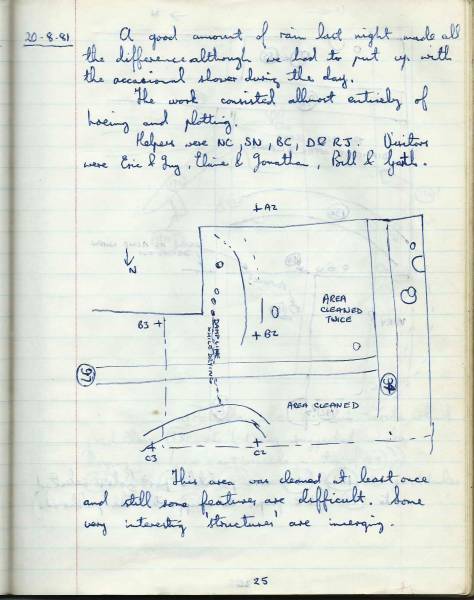 20-8-81 A good amount of rain last night made all
the difference although we had to put up with
the occasional shower during the day.
The work consisted allmost entirely of
hoeing and plotting.
Helpers were NC, SN, BC, D & RJ. Visitors
were Eric & Guy, Elaine & Jonathan, Bill & Garth.
+A2
N
AREA
CLEANED
TWICE
B3 +
+B2
DAMP LINE
WHILE DRYING
97
94
AREA CLEANED
C3
C2
This area was cleaned at least once
and still some features are difficult. Some
very interesting 'structures' are imerging.
25